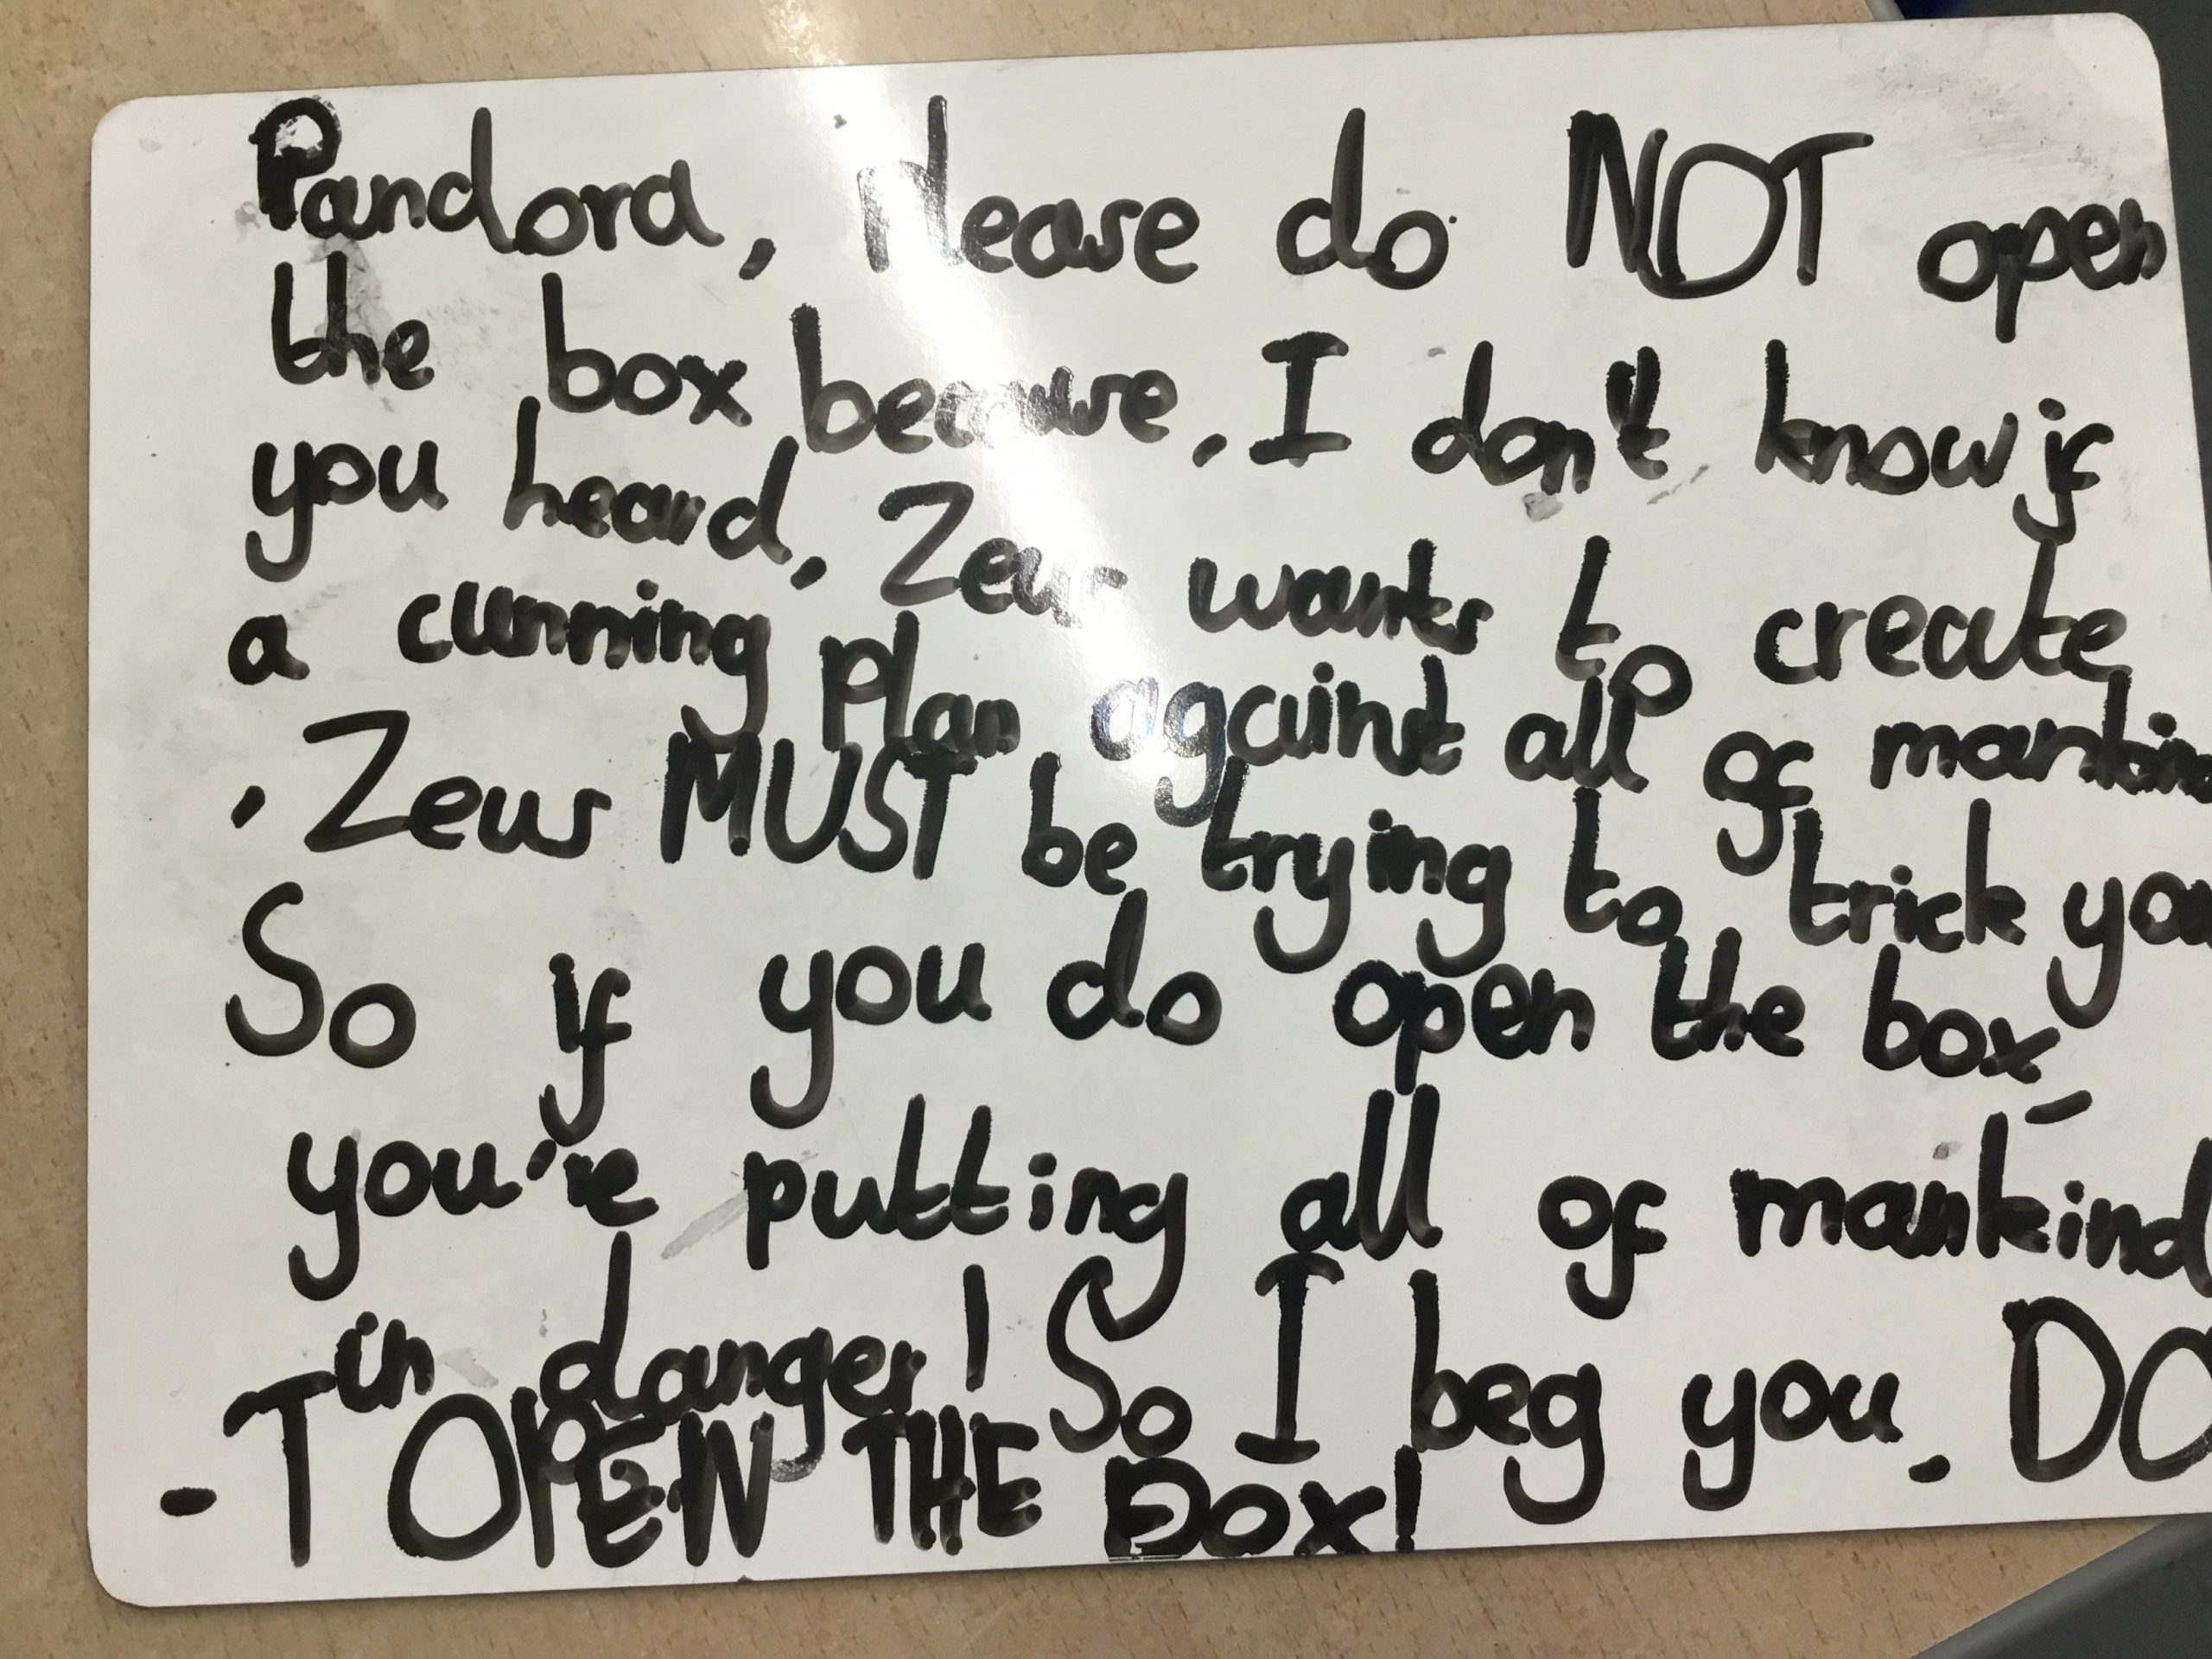 Pandora, Please do NOT open
the box because, I don't know if
you heard, Zeus wants to create
a cunning plan against all of mankind
, Zeus MUST be trying to trick you
So if you do open the box -
you're putting all of mankind
in danger! So I beg you. DO
-T OPEN THE BOx!